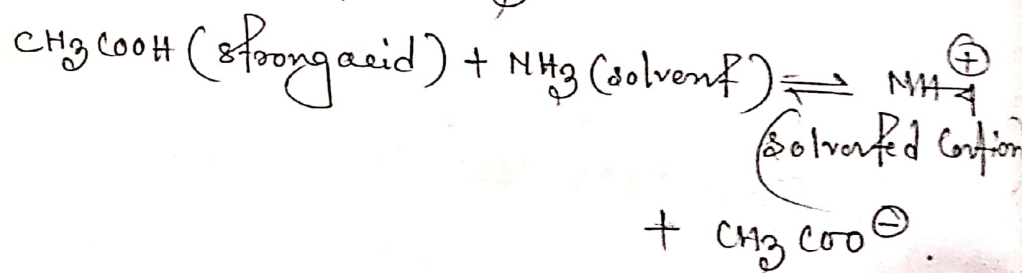 CH₃COOH (strong acid) + NH₃ (solvent) ⇌ NH₄⊕
(Solvated Cation)
+ CH₃COO⊖.